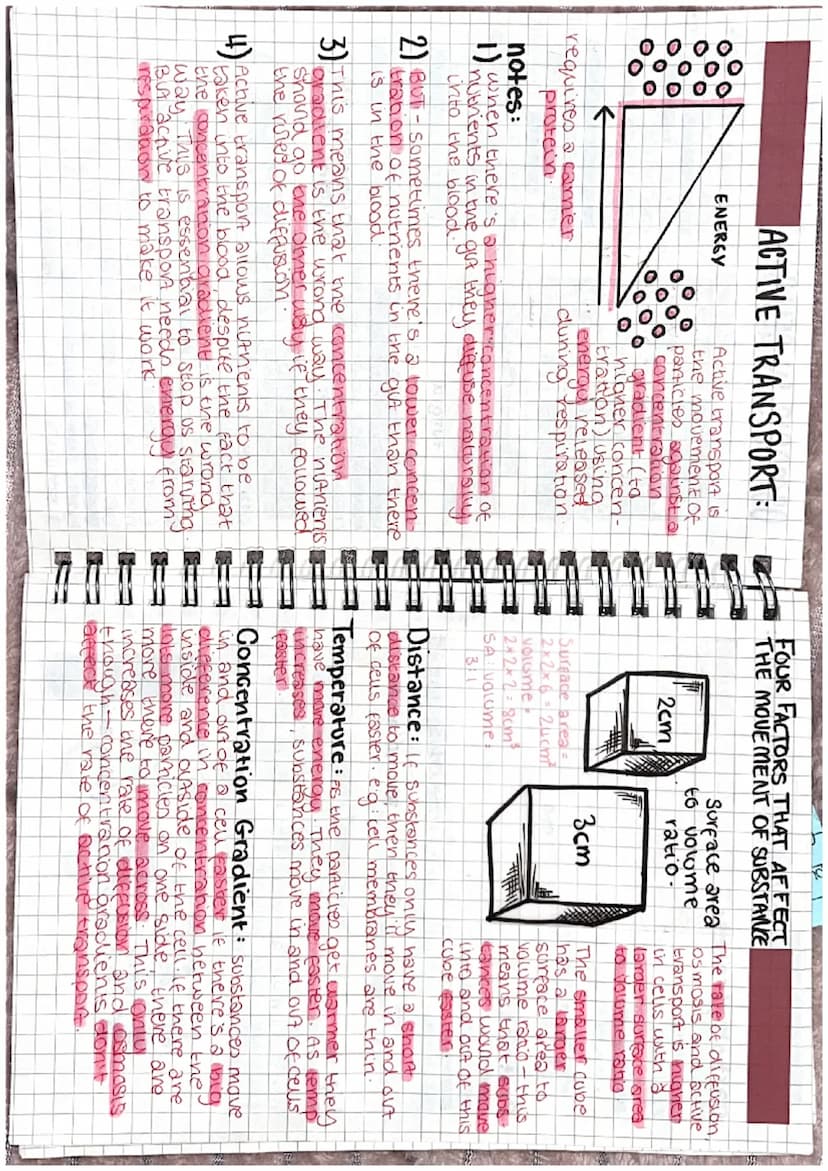 ACTIVE TRANSPORT:
ENERGY
Active transport is
the movement of
particles against a
concentration
gradient (to
higher concen-
tration) using
energy released
during respiration.
requires a carrier
protein.
notes:
1) when there's a higher concentration of
nutrients in the gut they diffuse naturally
into the blood.
2) BUT - sometimes there's a lower concen-
tration of nutrients in the gut than there
is in the blood.
3) This means that the concentration
gradient is the wrong way. The nutrients
should go the other way if they followed
the rules of diffusion.
4) Active transport allows nutrients to be
taken into the blood, despite the fact that
the concentration gradient is the wrong
way. This is essential to stop us starving.
But active transport needs energy from
respiration to make it work
FOUR FACTORS THAT AFFECT
THE MOVEMENT OF SUBSTANCE
2cm
3cm
Surface area
to volume
ratio.
The rate of diffusion,
osmosis and active
transport is higher
in cells with a
larger surface area
to volume ratio
The smaller cube
has a larger
surface area to
volume ratio - this
means that subs-
tances would move
into and out of this
cube easier
Surface area =
2×2×6 = 24cm²
volume =
2×2×2 = 8cm³
SA: volume =
3:1
Distance: if substances only have a short
distance to move, then they'll move in and out
of cells faster. e.g. cell membranes are thin.
Temperature: as the particles get warmer they
have more energy. They move faster. As temp
increases, substances move in and out of cells
faster.
Concentration Gradient: substances move
in and out of a cell faster if there's a big
difference in concentration between the
inside and outside of the cell. if there are
lots more particles on one side, there are
more there to move across. This only
increases the rate of diffusion and osmosis
though - concentration gradients don't
affect the rate of active transport.